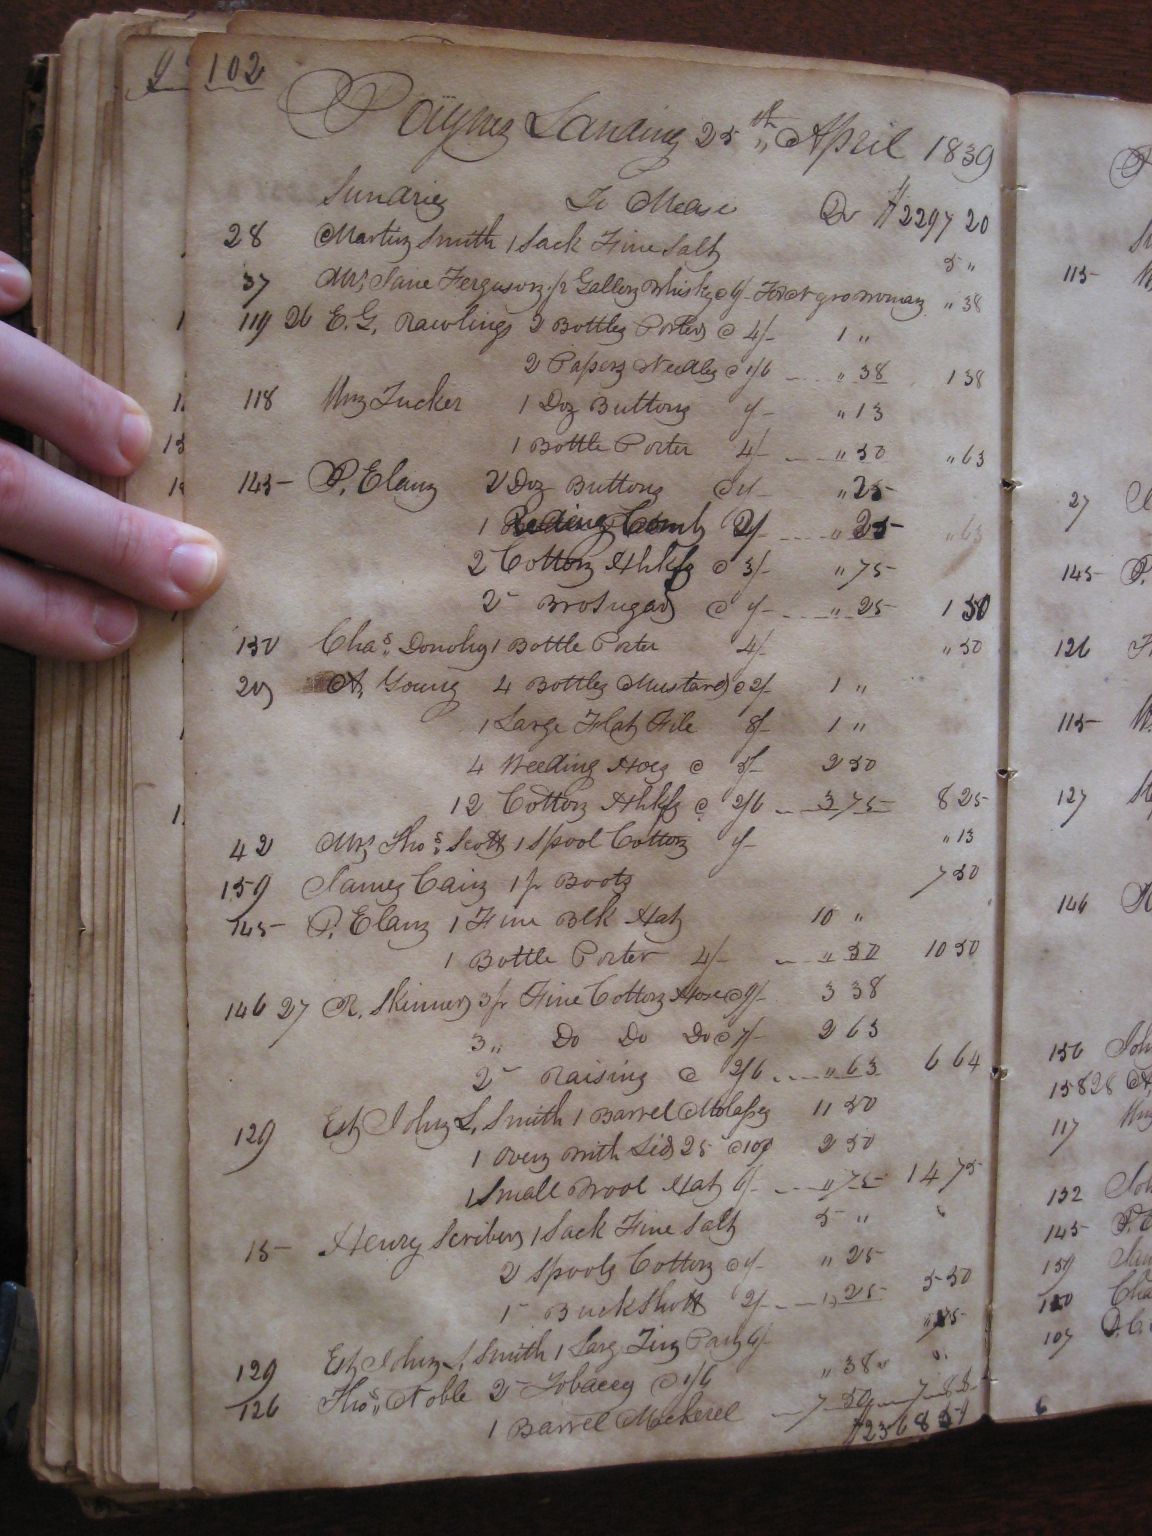 102
Payneş Landing 25th April 1839
Sundries To Mdse Dr $2297 20
28 Martin Smith 1 Sack Fine Salt 5 "
37 Mrs Jane Ferguson 1/2 Gallon Whisky @ 6/- For Negro Woman " 38
119 26 E. G. Rawlings 2 Bottles Porter @ 4/- 1 "
2 Papers Needles @ 1/6 " 38 1 38
118 Wm Tucker 1 Doz Buttons 1/- " 13
1 Bottle Porter 4/- " 50 " 63
145 P. Elam 2 Doz Buttons @ 1/- " 25
1 Reding Comb 2/- " 25 " 63
2 Cotton Hhkfs @ 3/- " 75
2 " Bro Sugar @ 1/- " 25 1 50
132 Chas. Donohy 1 Bottle Porter 4/- " 50
29 A. Young 4 Bottles Mustard @ 2/- 1 "
1 Large Flat File 8/- 1 "
4 Weeding Hoes @ 5/- 2 50
12 Cotton Hhkfs @ 2/6 3 75 8 25
42 Mrs Thos. Scott 1 Spool Cotton 1/- " 13
159 James Cain 1 pr Boots 7 50
145 P. Elam 1 Fine Blk Hat 10 "
1 Bottle Porter 4/- " 50 10 50
146 27 R. Skinner 3 pr Fine Cotton Hose @ 9/- 3 38
3 " Do Do Do @ 7/- 2 63
2 " Raisins @ 2/6 " 63 6 64
129 Est John L. Smith 1 Barrel Molasses 11 50
1 Oven With Lid 25 @ 10¢ 2 50
1 Small Wool Hat 6/- " 75 14 75
15 Henry Scriben 1 Sack Fine Salt 5 "
2 Spools Cotton @ 1/- " 25
1 " Buck Shott 2/- " 25 5 50
129 Est John L. Smith 1 Larg Tin Pan 6/- " 75
126 Thos. Noble 2 " Tobacco @ 1/6 " 38
1 Barrel Mackerel 7 50 7 88
$2368 54
115
27
145 P.
126
115
127
146
156 John
158 28
117
132
145 P.
159
107